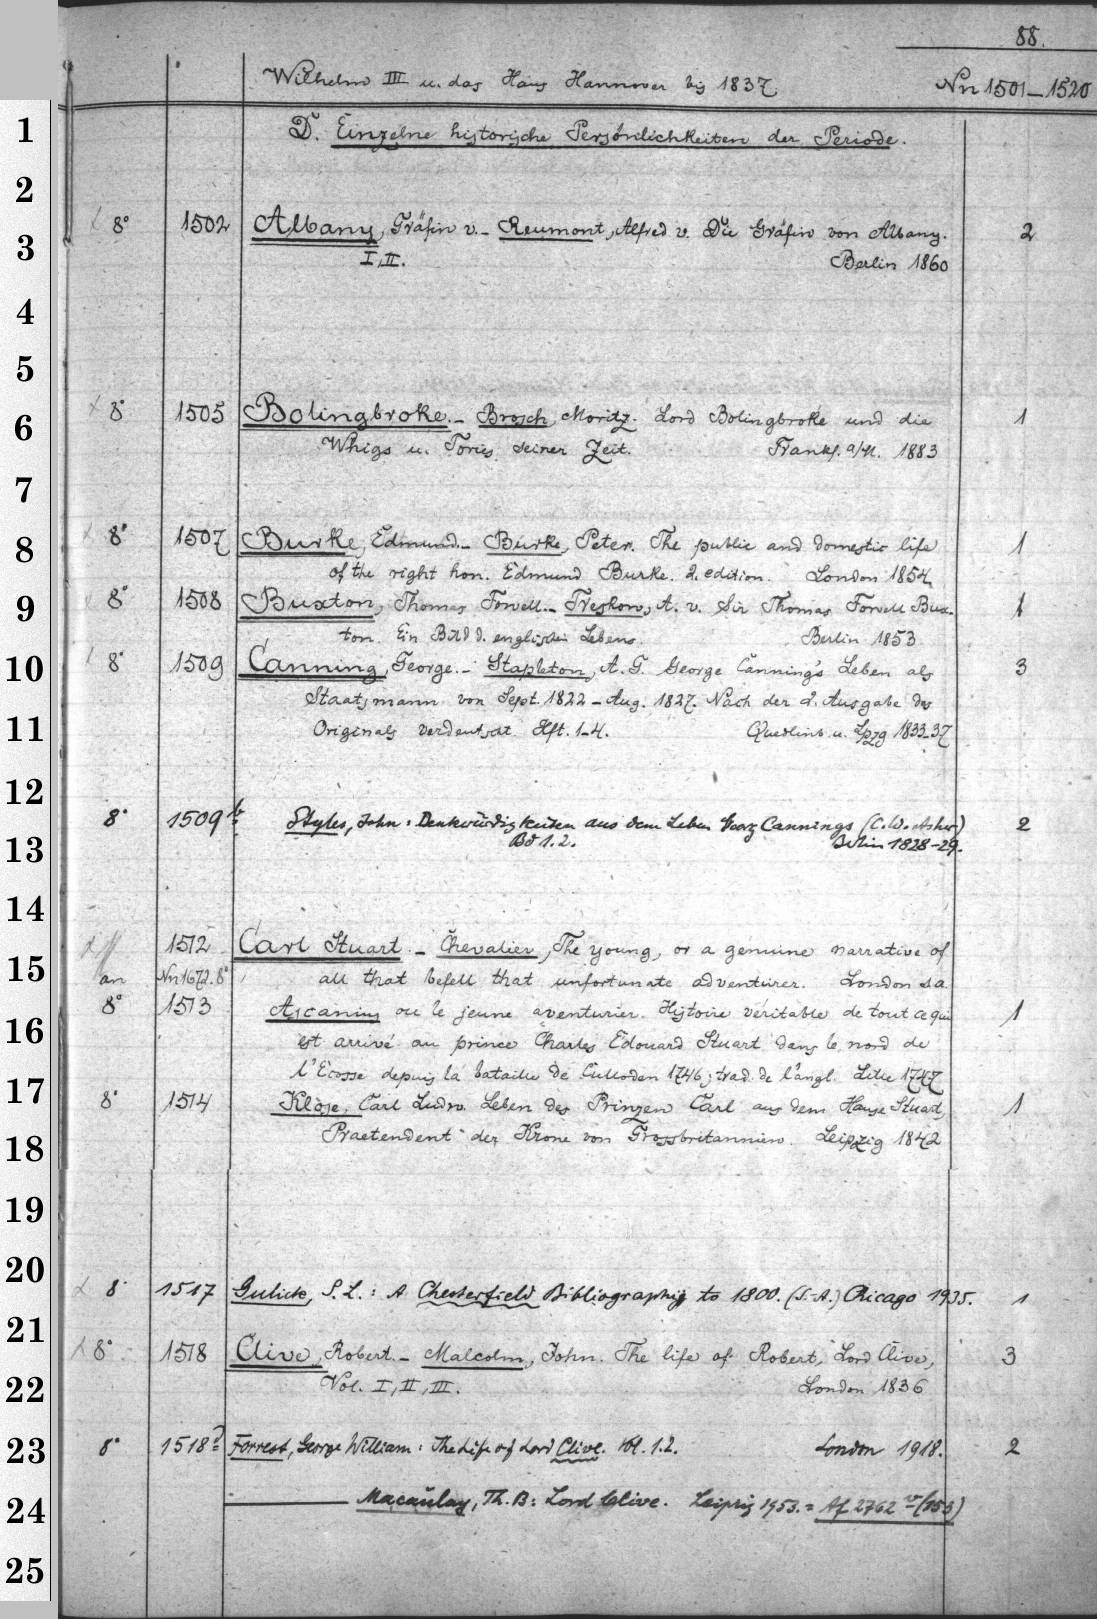 88.
Wilhelm III u. das Haus Hannover bis 1837. Nn 1501–1520
1 D. Einzelne historische Persönlichkeiten der Periode.
2
3 8° 1502 Albany, Gräfin v. – Reumont, Alfred v. Die Gräfin von Albany. 2
I, II. Berlin 1860
4
5
6 8° 1505 Bolingbroke. – Brosch, Moritz. Lord Bolingbroke und die 1
Whigs u. Tories seiner Zeit. Frankf. a/M. 1883
7
8 8° 1507 Burke, Edmund. – Burke, Peter. The public and domestic life 1
of the right hon. Edmund Burke. 2. edition. London 1854
9 8° 1508 Buxton, Thomas Fowell. – Treskow, A. v. Sir Thomas Fowell Bux- 1
ton. Ein Bild d. englischen Lebens. Berlin 1853
10 8° 1509 Canning, George. – Stapleton, A. G. George Canning's Leben als 3
Staatsmann von Sept. 1822 – Aug. 1827. Nach der 2. Ausgabe des
11 Originals verdeutscht. Hft. 1–4. Quedlinb. u. Lpzg 1833–37
12
8° 1509 b Styles, John: Denkwürdigkeiten aus dem Leben Georg Cannings (C. W. Asher) 2
13 Bd 1. 2. Berlin 1828–29.
14
15 1512 Carl Stuart. – Chevalier, The young, or a genuine narrative of
an Nn 1672. 8° all that befell that unfortunate adventurer. London s a
8° 1513 Ascanius ou le jeune aventurier. Histoire véritable de tout ce qui 1
16 est arrivé au prince Charles Edouard Stuart dans le nord de
l'Ecosse depuis la bataille de Culloden 1746; trad. de l'angl. Lille 1747
17 8° 1514 Klose, Carl Ludw. Leben des Prinzen Carl aus dem Hause Stuart, 1
18 Praetendent der Krone von Grossbritannien. Leipzig 1842
19
20 8° 1517 Gulick, S. L.: A Chesterfield Bibliography to 1800. (S.-A.) Chicago 1935. 1
21 8° 1518 Clive, Robert. – Malcolm, John. The life of Robert, Lord Clive, 3
22 Vol. I, II, III. London 1836
23 8° 1518 Forrest, George William: The Life of Lord Clive. Vol. 1.2. London 1918. 2
24 Macaulay, Th. B: Lord Clive. Leipzig 1953. = Af 2762 (153)
25